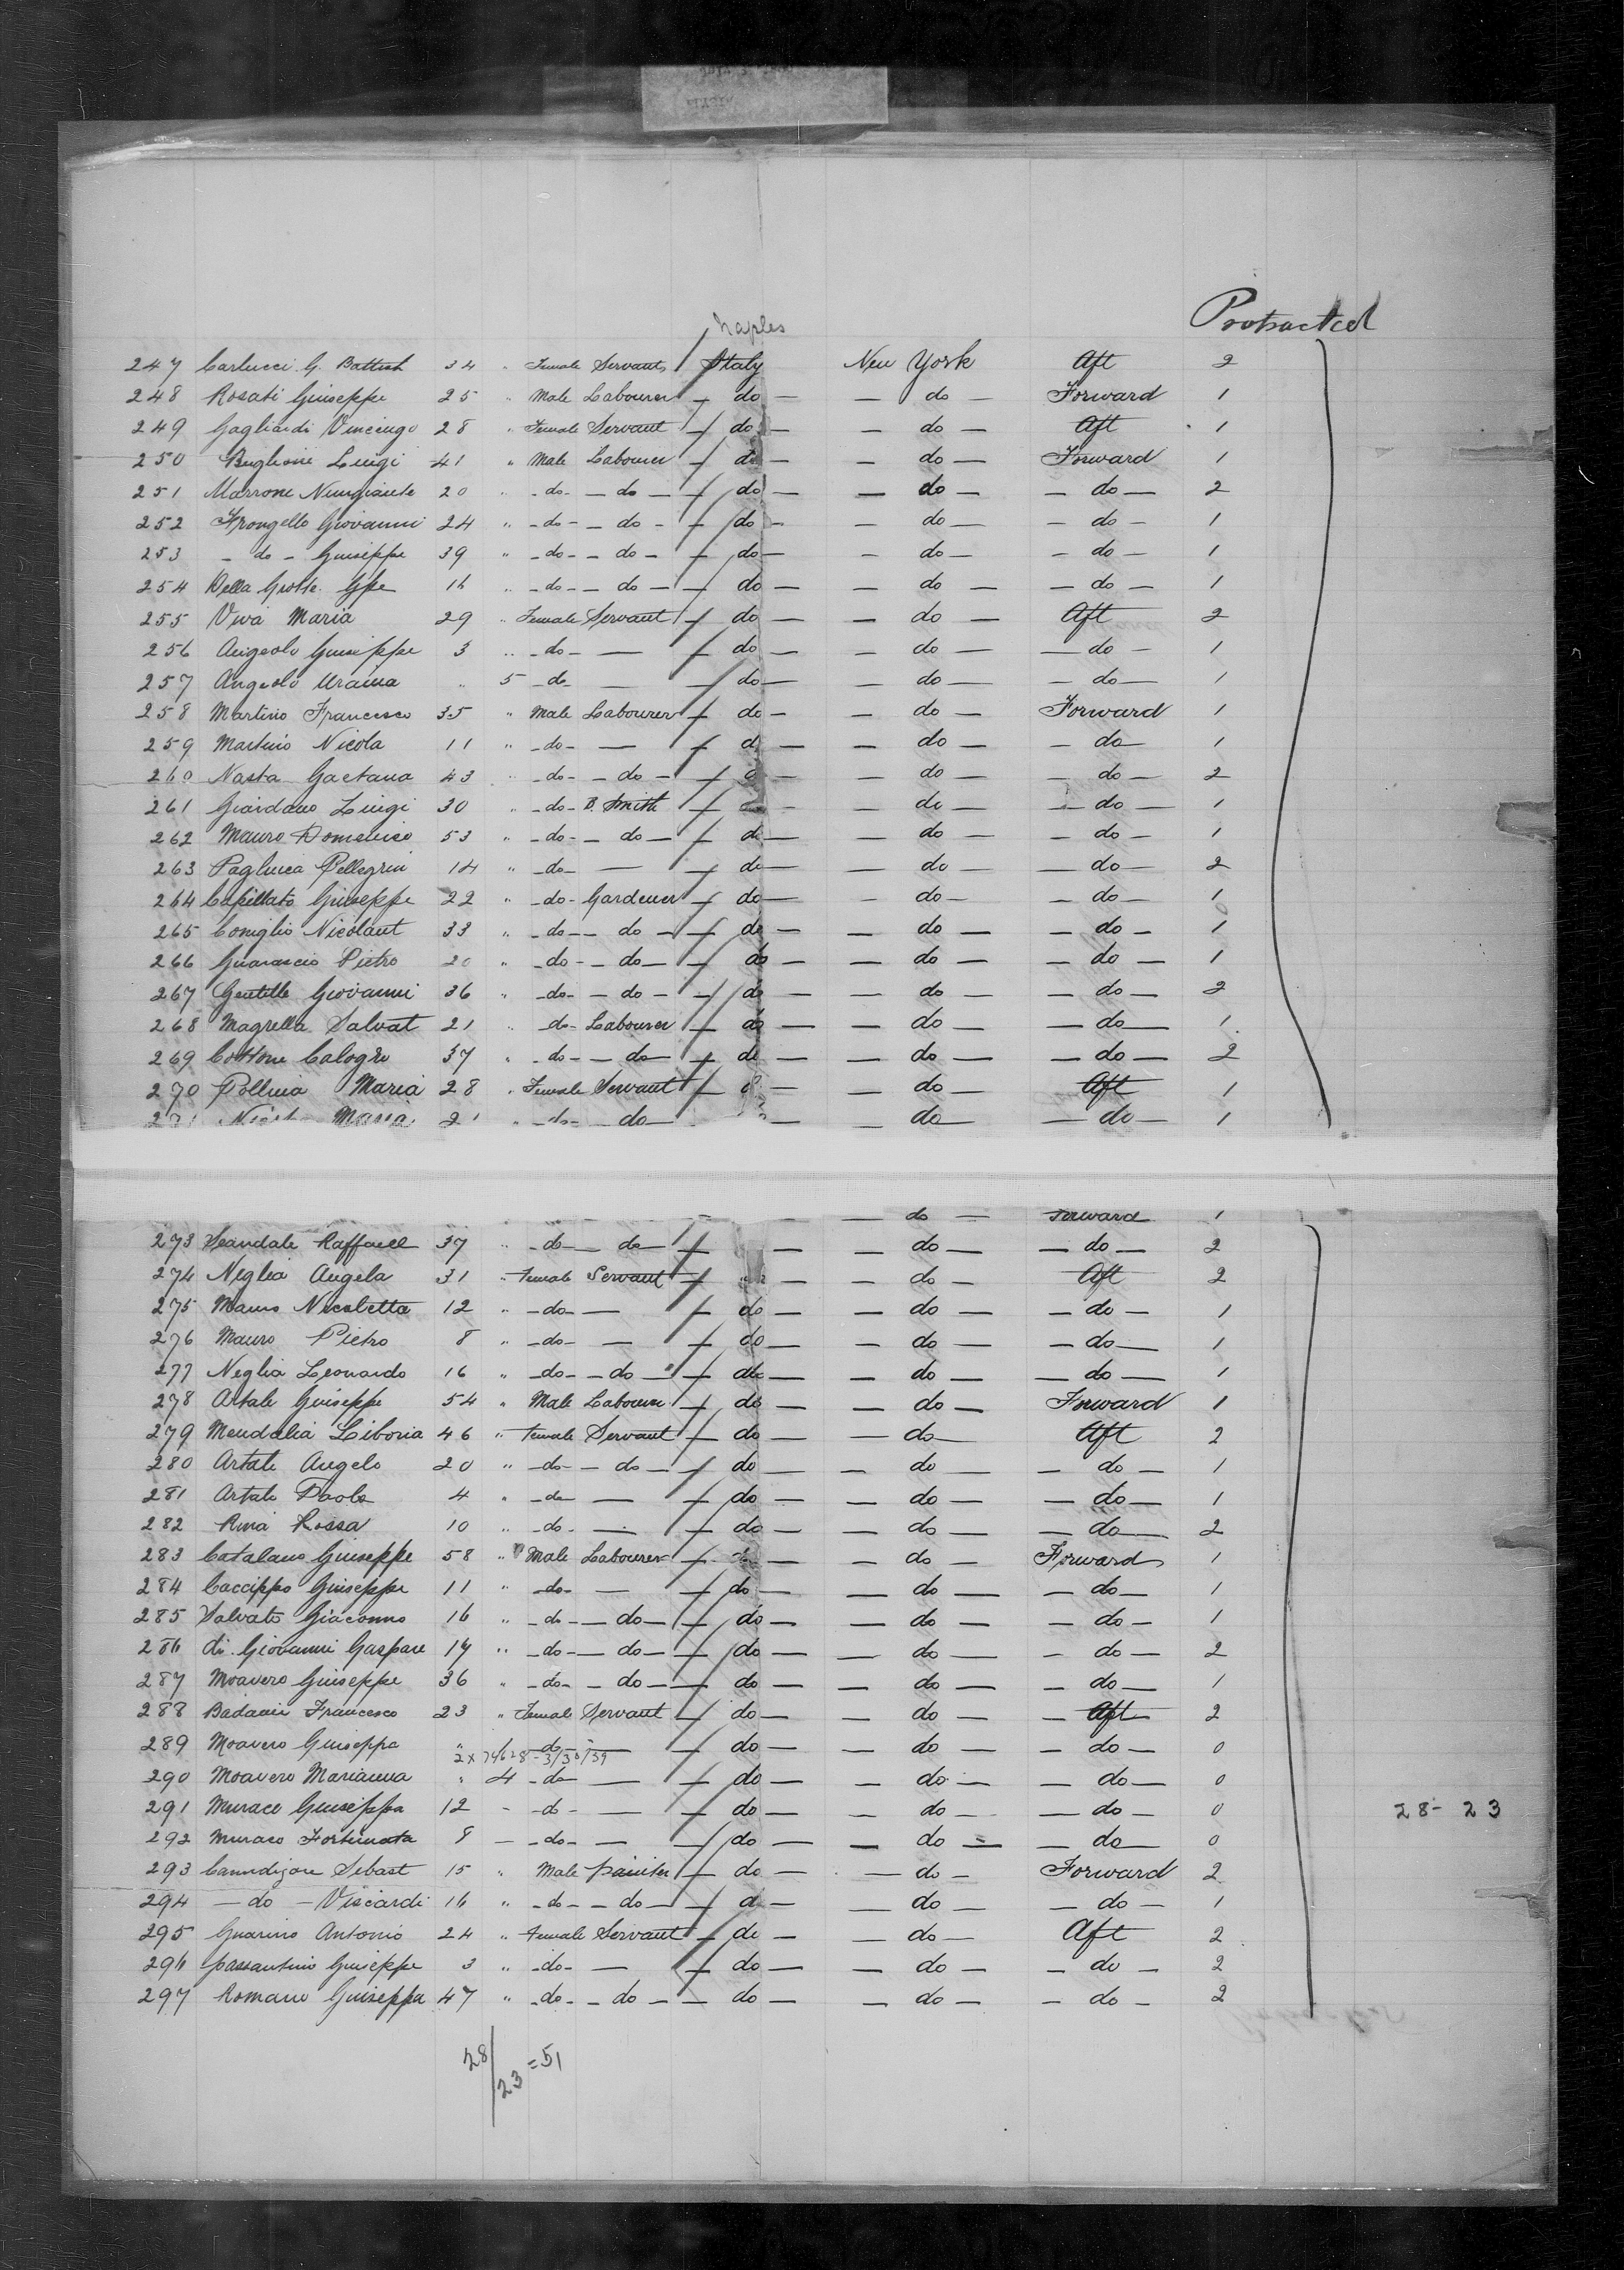 Naples
Protracted
247 Carlucci G. Battist 34 " Female Servant Italy New York Aft 2
248 Rosati Giuseppe 25 " Male Labourer - do - - do - Forward 1
249 Gagliardi Vincenzo 28 " Female Servant - do - - do - Aft 1
250 Buglione Luigi 41 " Male Labourer - do - - do - Forward 1
251 Marrone Nunziante 20 " - do - - do - - do - - do - - do - 2
252 Frongello Giovanni 24 " - do - - do - - do - - do - - do - 1
253 - do - Guiseppe 39 " - do - - do - - do - - do - - do - 1
254 Della Grotte Gpe 16 " - do - - do - - do - - do - - do - 1
255 Viva Maria 29 " Female Servant - do - - do - Aft 2
256 Angeolo Guiseppe 3 " - do - - - do - - do - - do - 1
257 Angeolo " 5 - do - - do - - do - - do - 1
258 Martino Francesco 35 " Male Labourer - do - - do - Forward 1
259 Martino Nicola 11 " - do - - - do - - do - - do - 1
260 Nasta Gaetana 43 " - do - - do - - do - - do - - do - 2
261 Giordano Luigi 30 " - do - B. Smith - do - - do - - do - 1
262 Mauro Domenico 53 " - do - - do - - do - - do - - do - 1
263 Pagluca Pellegrin 14 " - do - - - do - - do - - do - 2
264 Capillato Giuseppe 22 " - do - Gardener - do - - do - - do - 1
265 Coniglio Nicolaut 33 " - do - - do - - do - - do - - do - 1
266 Guarascio Pietro 20 " - do - - do - - do - - do - - do - 1
267 Gentille Giovanni 36 " - do - - do - - do - - do - - do - 2
268 Magrella Salvat 21 " - do - Labourer - do - - do - - do - 1
269 Cottone Calogro 37 " - do - - do - - do - - do - - do - 2
270 Pollina Maria 28 " Female Servant - do - - do - Aft 1
271 Maria 21 " - do - - do - - do - - do - 1
- do - Forward 1
273 Scandale Raffaell 37 " - do - - do - - - do - - do - 2
274 Neglia Angela 31 " Female Servant - do - - do - Aft 2
275 Mauro Nicoletta 12 " - do - - - do - - do - - do - 1
276 Mauro Pietro 8 " - do - - - do - - do - - do - 1
277 Neglia Leonardo 16 " - do - - do - - do - - do - - do - 1
278 Artale Giuseppe 54 " Male Labourer - do - - do - Forward 1
279 Mendalia Liboria 46 " Female Servant - do - - do - Aft 2
280 Artale Angelo 20 " - do - - do - - do - - do - - do - 1
281 Artale Paolo 4 " - do - - - do - - do - - do - 1
282 Rina Rossa 10 " - do - - - do - - do - - do - 2
283 Catalano Guiseppe 58 " Male Labourer - do - - do - Forward 1
284 Caccippo Giuseppe 11 " - do - - - do - - do - - do - 1
285 Salvato Giacomo 16 " - do - - do - - do - - do - - do - 1
286 di Giovanni Gaspare 17 " - do - - do - - do - - do - - do - 2
287 Moavero Giuseppe 36 " - do - - do - - do - - do - - do - 1
288 Badami Francesco 23 " Female Servant - do - - do - - Aft - 2
289 Moavero Giuseppa " - do - - - do - - do - - do - 0
2 x 74628 - 3/30/39
290 Moavero Marianna " 4 - do - - - do - - do - - do - 0
291 Murace Guiseppa 12 - - do - - - do - - do - - do - 0
28-23
292 Muraco Fortunata 8 - - do - - - do - - do - - do - 0
293 Canndizare Sebast 15 " Male painter - do - - do - Forward 2
294 - do - Viscardi 16 " - do - - do - - do - - do - - do - 1
295 Guarino Antonio 24 " Female Servant - do - - do - Aft 2
296 passantino Guiseppe 3 " - do - - - do - - do - - do - 2
297 Romano Guiseppa 47 " - do - - do - - do - - do - - do - 2
28/23 = 51